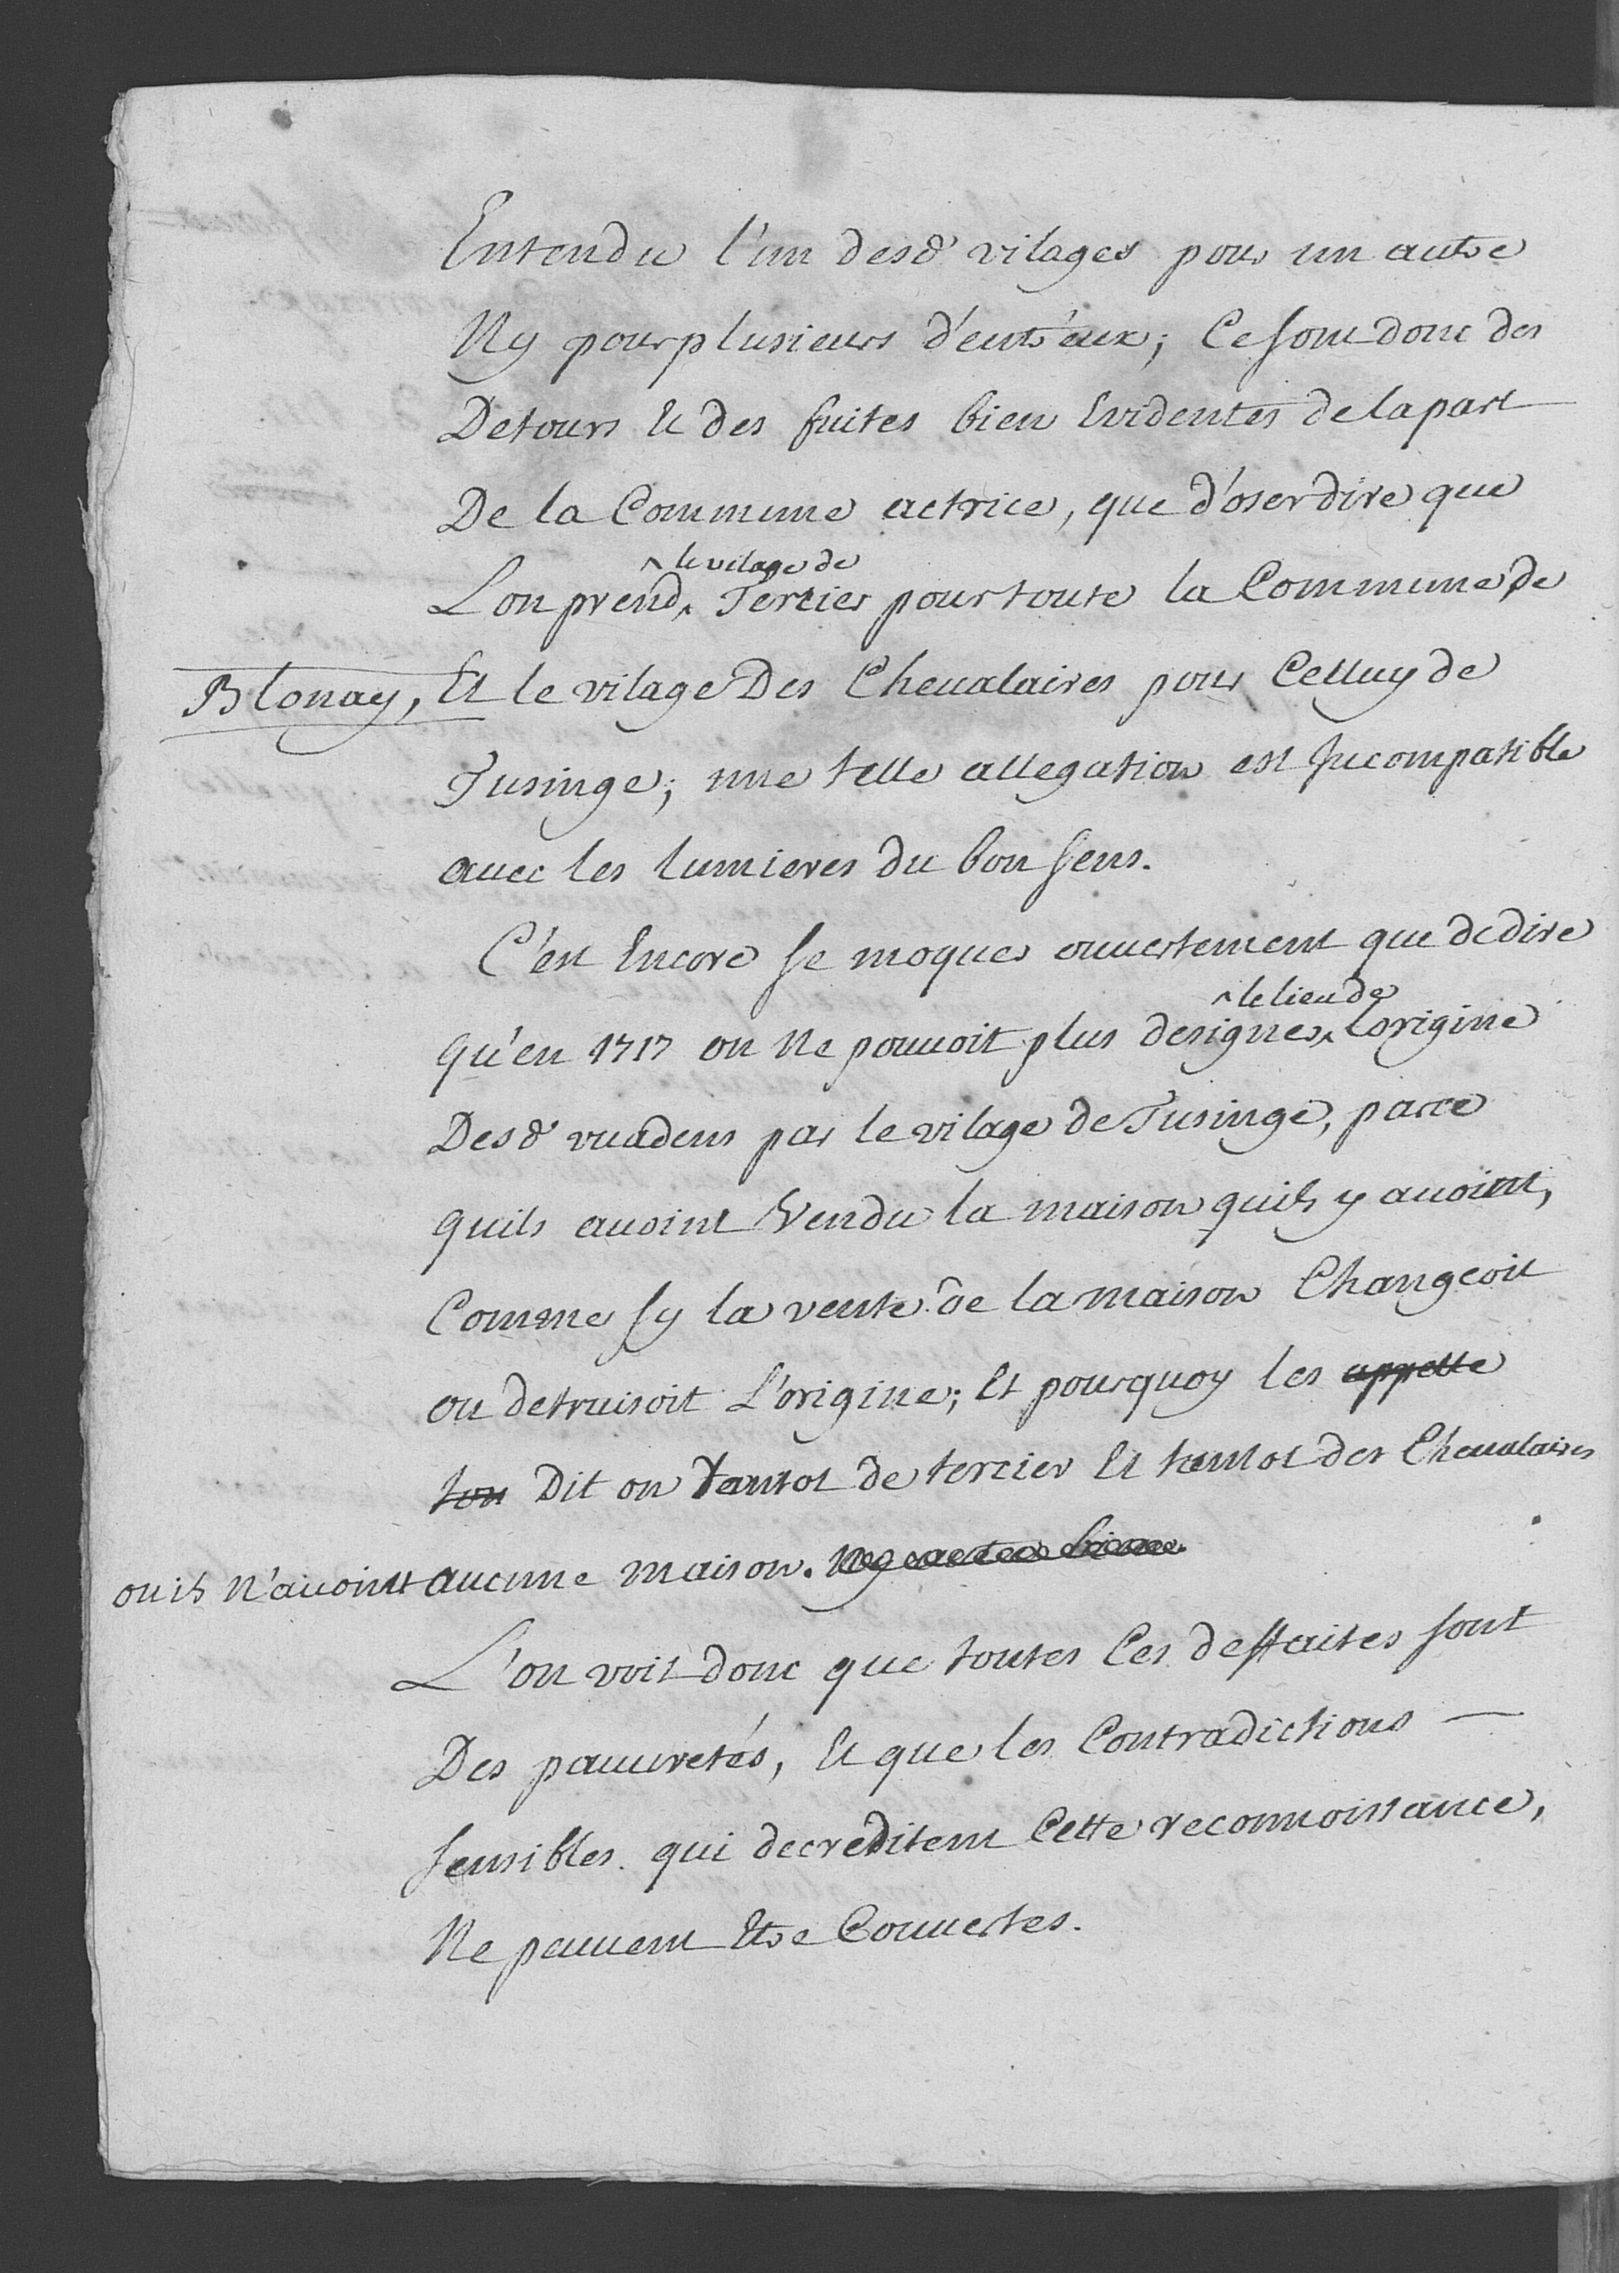 Entendu l'un desd.' vilages pour un autre
Ny pour plusieurs d'entr'eux; Ce sont donc des
Detours Et des fuites bien Evidentes de la part
De la Commune actrice, que d'oser dire que
^ le vilage de
Lon prend ^ Tercier pour toute la Commune de
Blonay, Et le vilage Des Chevalaires pour Celluy de
Tusinge; une telle allegation est Incompatible
avec les lumieres du bon sens.
C'est Encore se moquer ouvertement que de dire
^ le lieu de
qu'en 1717 on Ne pouvoit plus designer ^ Lorigine
Desd.' vuadens par le vilage de Tusinge, parce
quils avoint Vendu la maison quils y avoint,
Comme sy la vente de la maison Changeoit
ou detruisoit L'origine; Et pourquoy les appelle
ton Dit on Tantot de tercier Et tantot des Chevalaires
ou ils N'avoint aucune maison. Ny
L'on voit donc que toutes Ces deffaites sont
Des pauuretés, Et que les Contradictions —
sensibles qui decreditent Cette reconnoissance,
Ne peuuent Etre Couuertes.